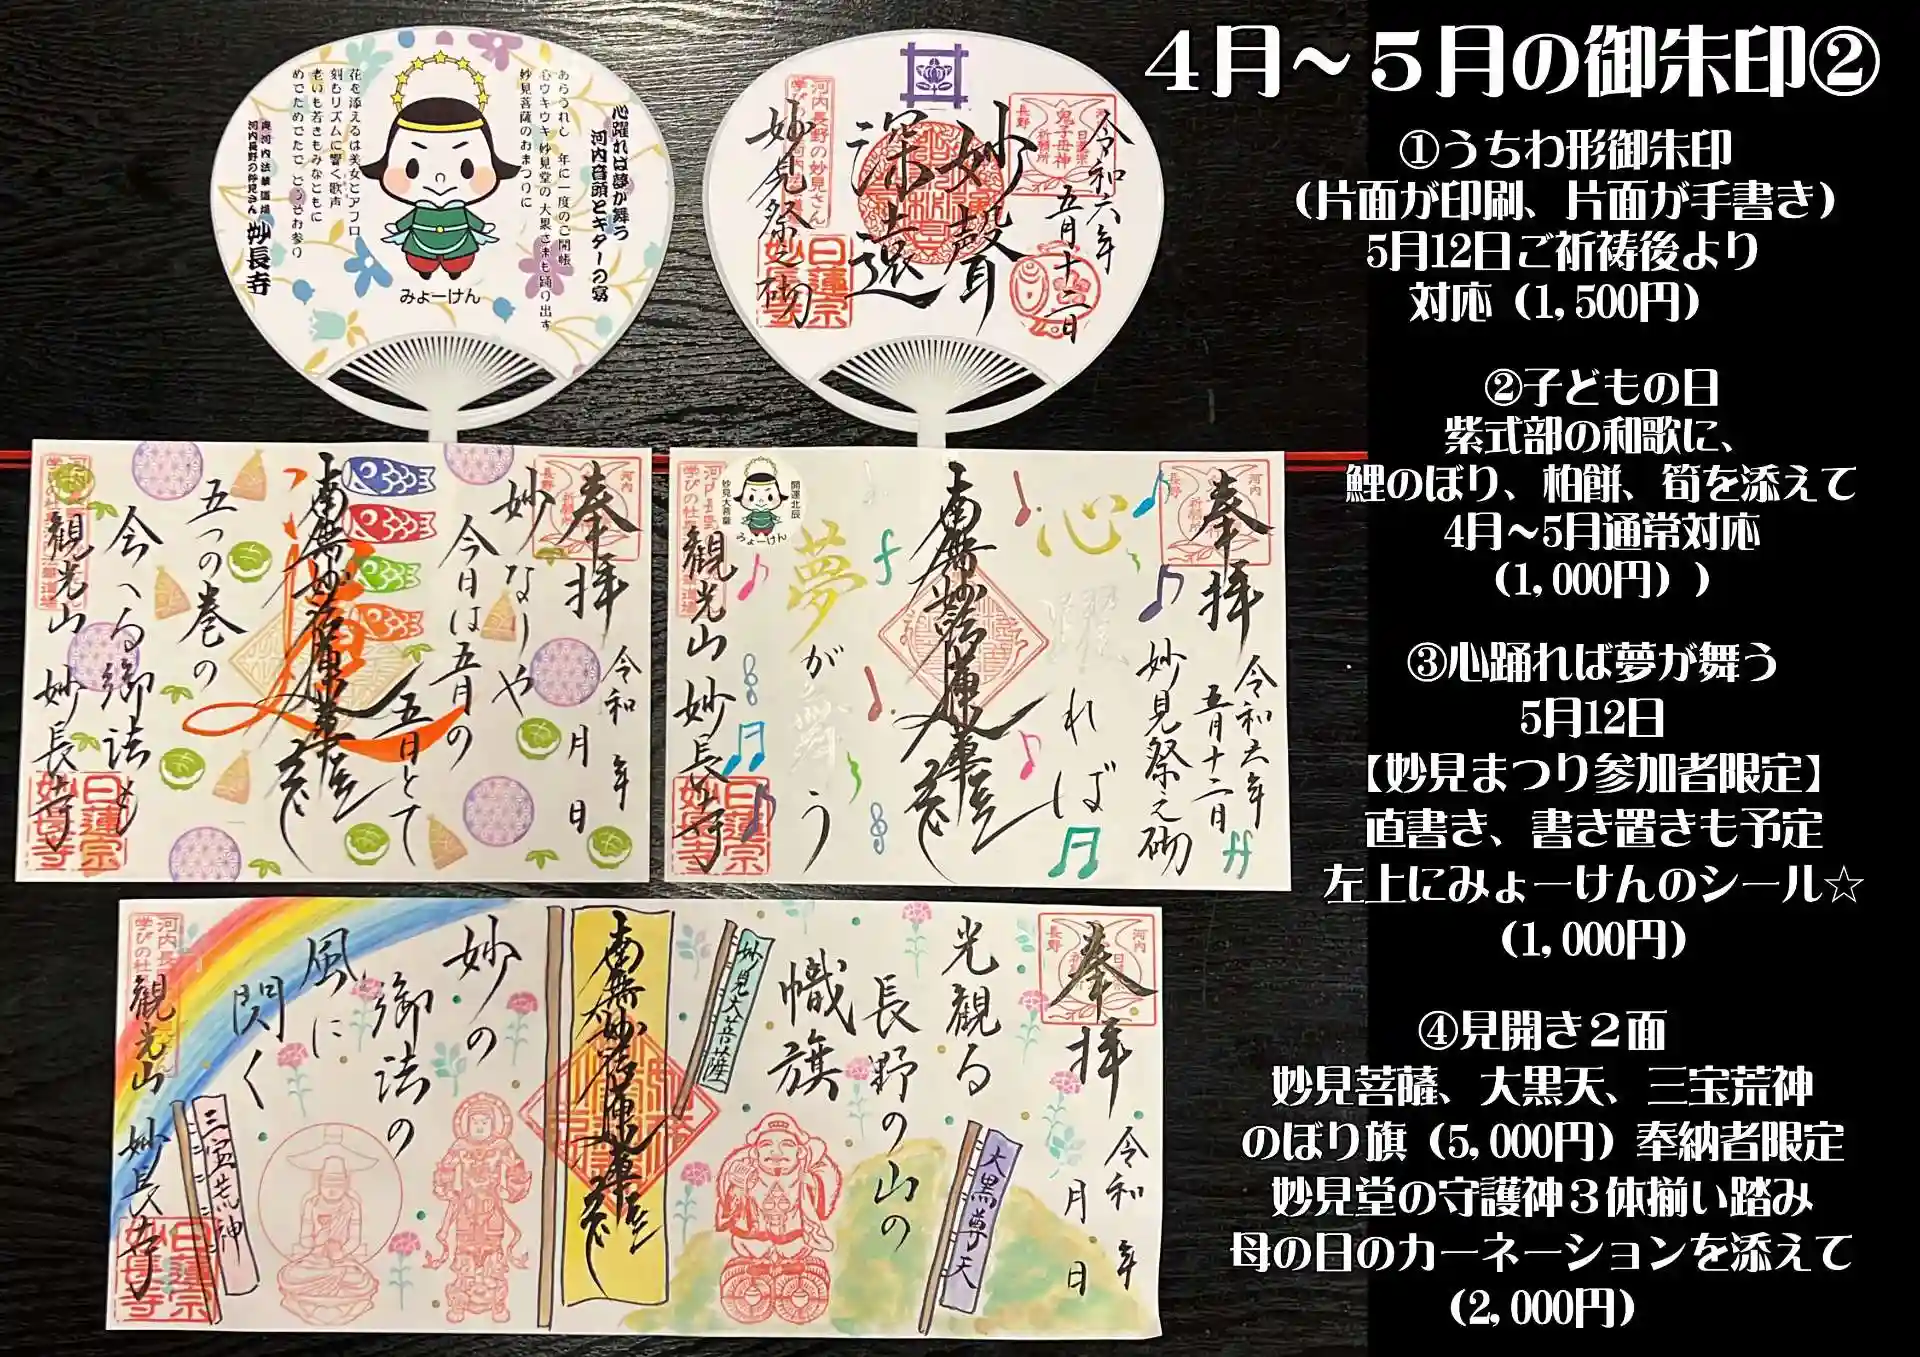 4月～5月の御朱印②
①うちわ形御朱印
（片面が印刷、片面が手書き）
5月12日ご祈祷後より
対応（1,500円）
②子どもの日
紫式部の和歌に、
鯉のぼり、柏餅、筍を添えて
4月～5月通常対応
（1,000円））
③心踊れば夢が舞う
5月12日
【妙見まつり参加者限定】
直書き、書き置きも予定
左上にみょーけんのシール☆
（1,000円）
④見開き２面
妙見菩薩、大黒天、三宝荒神
のぼり旗（5,000円）奉納者限定
妙見堂の守護神３体揃い踏み
母の日のカーネーションを添えて
（2,000円）
心躍れば夢が舞う
河内音頭とギターの宴
あらうれし 年に一度のご開帳
心ウキウキ 妙見堂の大黒さまも踊り出す
妙見菩薩のおまつりに
花を添えるは美女とアフロ
刻むリズムに響く歌声
老いも若きもみなともに
めでためでたで どうぞお参り
奥河内法華道場
河内長野の妙見さん 妙長寺
みょーけん
令和六年
五月十二日
妙聲
深遠
妙見祭之砌
河内長野の妙見さん
日蓮宗
妙長寺
鬼子母神
祈願所
奉拝
令和 年 月 日
妙なりや
今日は五月の
五日とて
南無妙法蓮華経
五つの巻の
会へる御法も
観光山 妙長寺
日蓮宗
妙長寺
奉拝
令和六年
五月十二日
妙見祭之砌
心
踊れば
南無妙法蓮華経
夢が舞う
開運北辰
妙見大菩薩
みょーけん
観光山 妙長寺
日蓮宗
妙長寺
奉拝
令和 年 月 日
光観る
長野の山の
幟旗
妙見大菩薩
大黒尊天
南無妙法蓮華経
妙の
御法の
風に
閃く
三宝荒神
観光山 妙長寺
日蓮宗
妙長寺